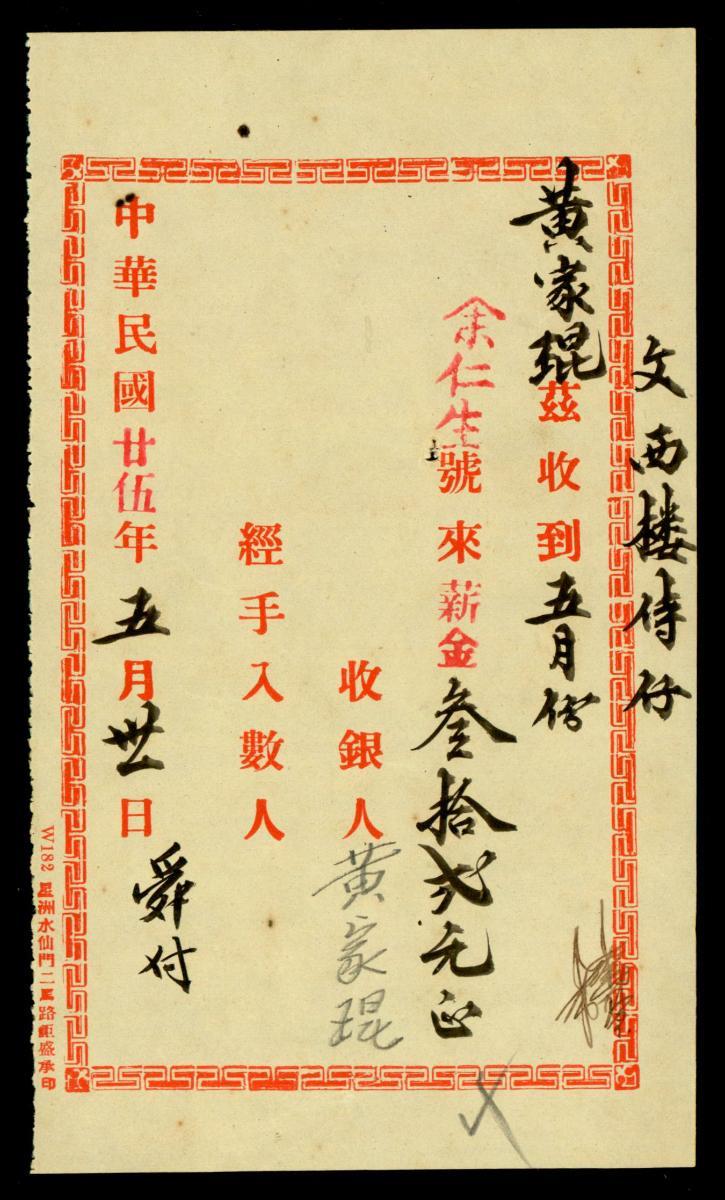 文西楼侍仔
黃家琨茲收到五月份
余仁生號來薪金叁拾弍元正
收銀人黄家琨
經手入數人
中華民國廿伍年五月卅一日
舜付
W182 星洲水仙門二馬路鉅盛承印